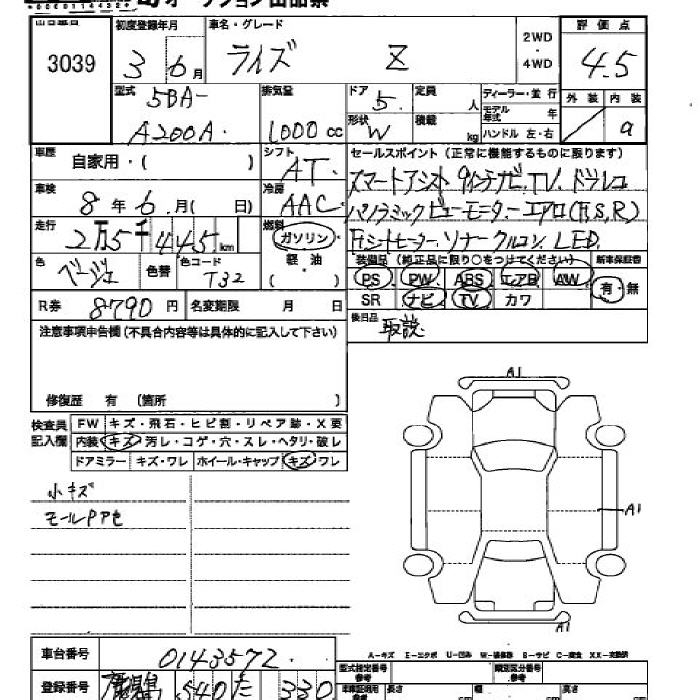 オークション出品票
出品番号 初度登録年月 車名・グレード 2WD・4WD 評価点
3039 3 6月 ライズ Z 4.5
型式 5BA- A200A 排気量 1000 cc ドア 5 定員 人 ディーラー・並行 外装 内装 a
形状 W 積載 kg モデル年式 年 ハンドル 左・右
車歴 自家用・( ) シフト AT セールスポイント(正常に機能するものに限ります)
車検 8年 6月( 日) 冷房 AAC スマートアシスト 9インチナビ.TV.ドラレコ
パノラミックビューモニター エアロ(F,S,R)
走行 2万5千445km 燃料 ガソリン 軽油 ( ) Fシートヒーター.ソナー クルコン.LED.
色 ベージュ 色替 色コード T32 装備品(純正品に限り○をつけてください) 新車保証書
PS PW ABS エアB AW 有・無
R券 8790円 名変期限 月 日 SR ナビ TV カワ
注意事項申告欄(不具合内容等は具体的に記入して下さい) 後日品 取説
修復歴 有 (箇所 )
検査員記入欄 FW キズ・飛石・ヒビ割・リペア跡・X要
内装 キズ 汚レ・コゲ・穴・スレ・ヘタリ・破レ
ドアミラー キズ・ワレ ホイール・キャップ キズ・ワレ
小キズ
モールPアセ
A1
A1
A1
A-キズ E-エクボ U-凹み W-補修跡 S-サビ C-腐食 XX-交換済
車台番号 0143572 型式指定番号 参考 類別区分番号 参考
登録番号 540 た 330 車庫証明用 参考 長さ cm 幅 cm 高さ cm